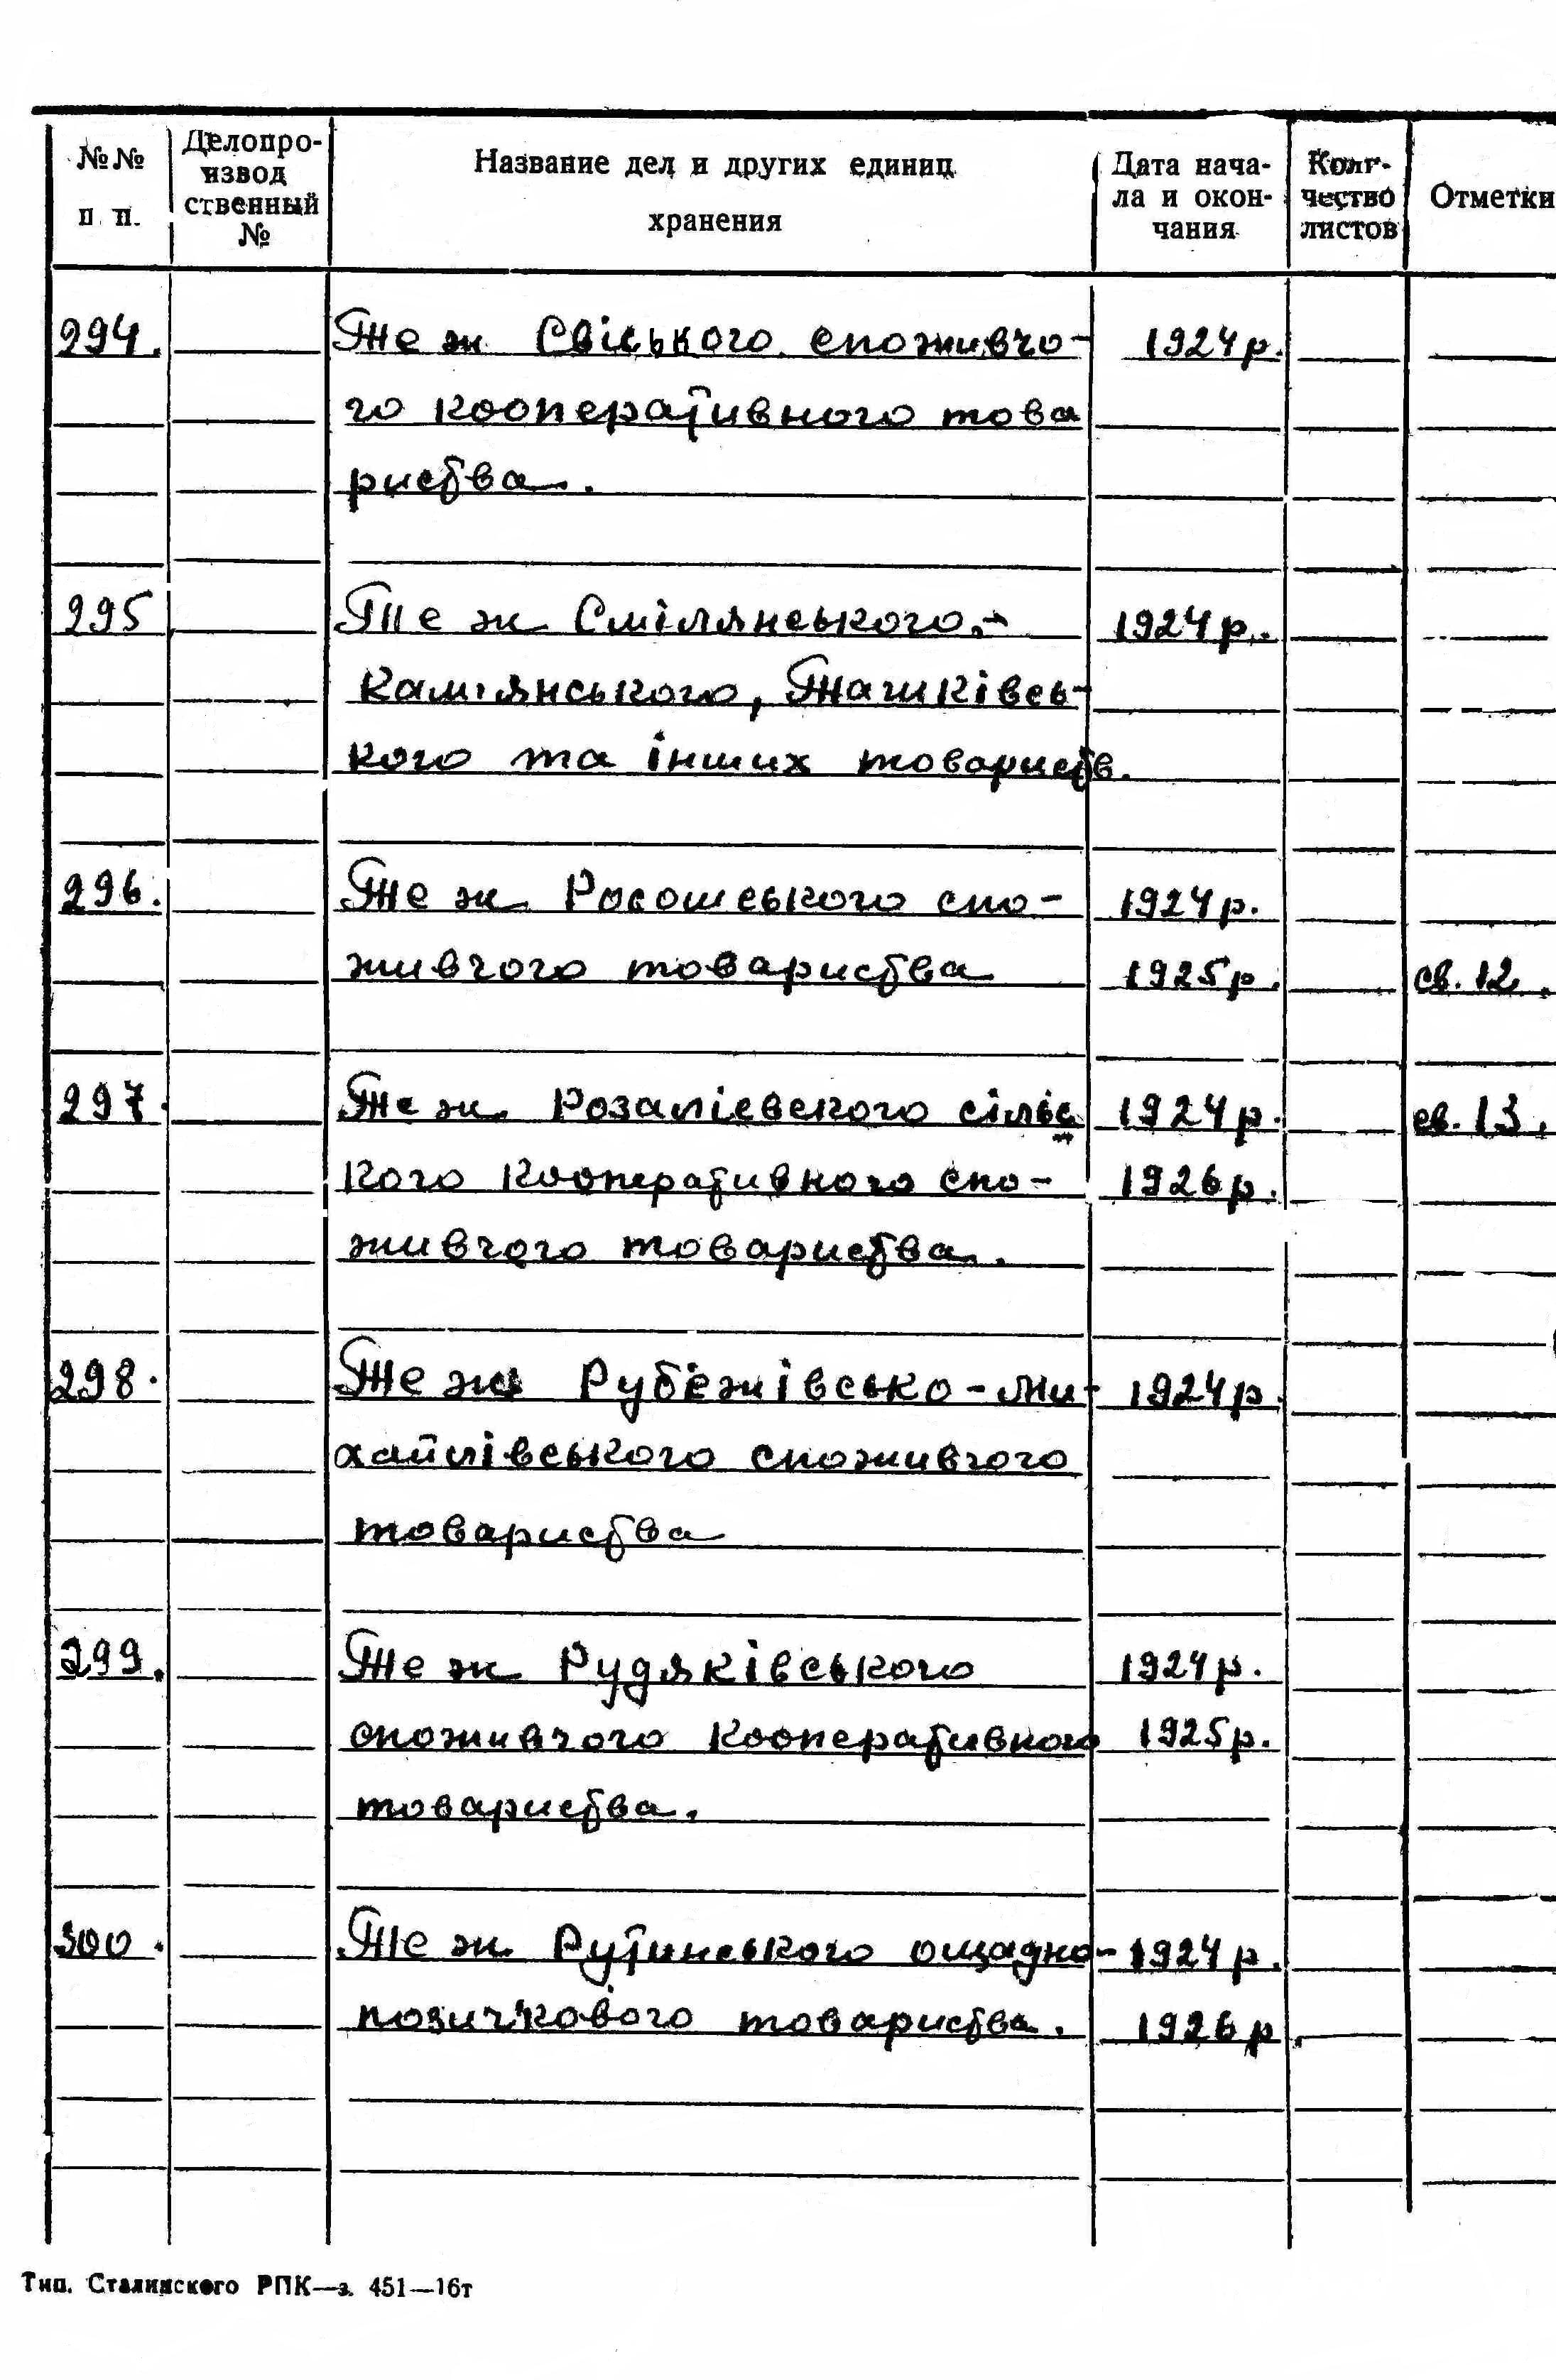 №№ п. п.
Делопро-
извод
ственный
№
Название дел и других единиц
хранения
Дата нача-
ла и окон-
чания
Коли-
чество
листов
Отметки
294. Те ж Свіського споживчо- 1924 р.
го кооперативного това
риства.
295 Те ж Смілянського,-  1924 р.
Камянського, Ташківсь-
кого та інших товариств.
296. Те ж Росошського спо- 1924 р.
живчого товариства 1925 р. св. 12.
297. Те ж Розаліевского сільс 1924 р. св. 13.
кого кооперативного спо- 1926 р.
живчого товариства.
298. Те ж Рубежівсько-Ми- 1924 р.
хайлівського споживчого
товариства
299. Те ж Рудяківського 1924 р.
споживчого кооперативного 1925 р.
товариства.
300. Те ж Рутинського ощадно- 1924 р.
позичкового товариства. 1926 р.
Тип. Сталинского РПК—з. 451—16т